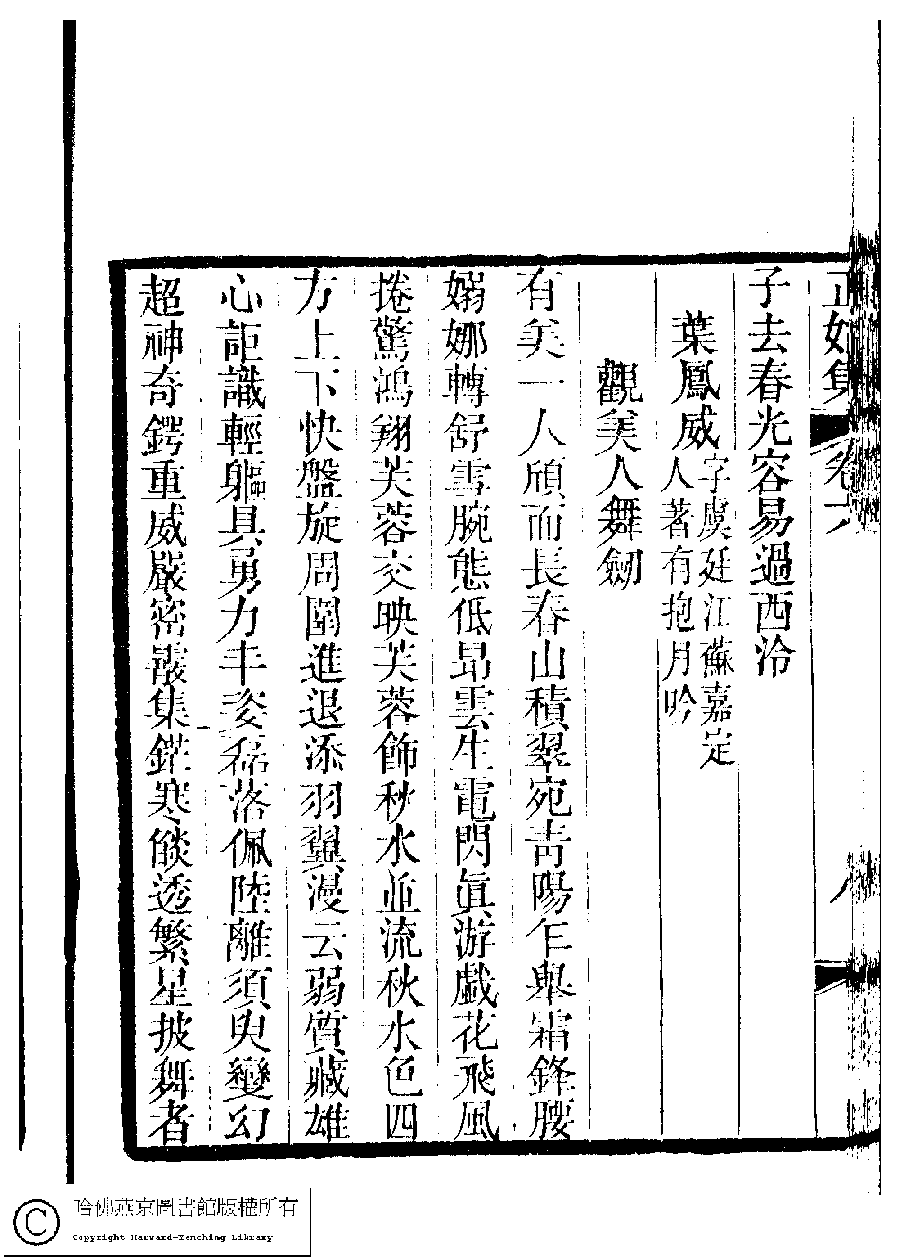 正始集 卷六 八
子去春光容易過西泠
葉鳳威字虞廷江蘇嘉定
人著有抱月吟
觀美人舞劒
有美一人頎而長春山積翠宛青陽乍舉霜鋒腰
嫋娜轉舒雪腕態低昂雲生電閃眞游戲花飛風
捲驚鴻翔芙蓉交映芙蓉飾秋水並流秋水色四
方上下快盤旋周圍進退添羽翼漫云弱質藏雄
心詎識輕軀具勇力丰姿磊落佩陸離須臾變幻
超神奇鍔重威嚴密霰集鋩寒餤透繁星披舞者
哈佛燕京圖書館版權所有
Copyright Harvard-Yenching Library